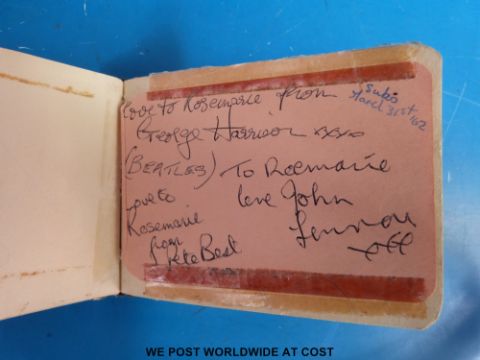 love to Rosemarie from
George Harrison xxxx
(BEATLES)
Subs
March 31st '62
To Roemarie
love John
Lennon
xff
love to
Rosemarie
from
Pete Best
WE POST WORLDWIDE AT COST